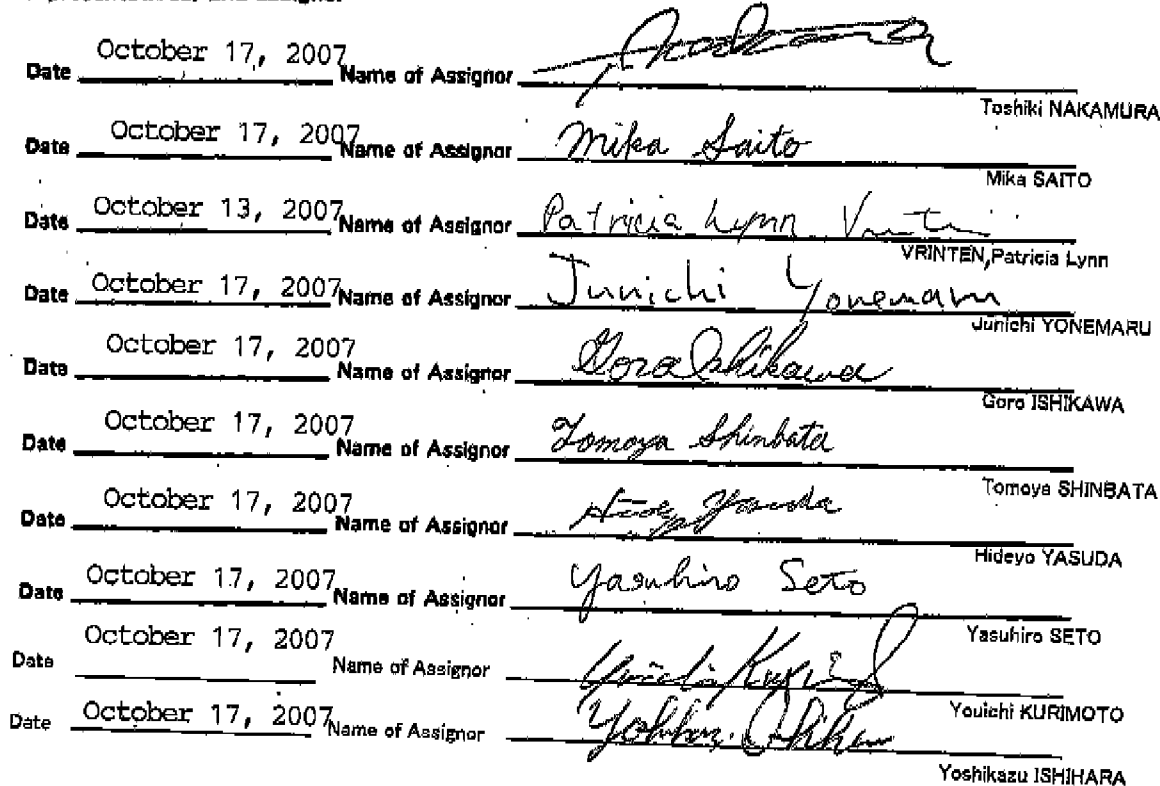 Date October 17, 2007 Name of Assignor
Toshiki NAKAMURA
Date October 17, 2007 Name of Assignor Mika Saito
Mika SAITO
Date October 13, 2007 Name of Assignor Patricia Lynn
VRINTEN,Patricia Lynn
Date October 17, 2007 Name of Assignor Junichi Yonemaru
Junichi YONEMARU
Date October 17, 2007 Name of Assignor Goro Ishikawa
Goro ISHIKAWA
Date October 17, 2007 Name of Assignor Tomoya Shinbata
Tomoya SHINBATA
Date October 17, 2007 Name of Assignor Yasuda
Hideyo YASUDA
Date October 17, 2007 Name of Assignor Yasuhiro Seto
Yasuhiro SETO
Date October 17, 2007 Name of Assignor
Youichi KURIMOTO
Date October 17, 2007 Name of Assignor
Yoshikazu ISHIHARA